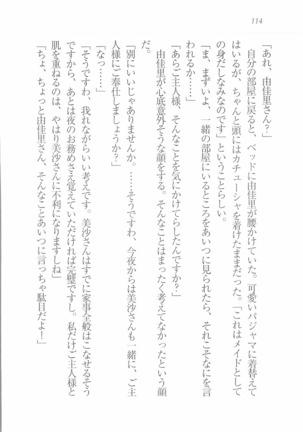 114
「あれ、由佳里さん？」
自分の部屋に戻ると、ベッドに由佳里が腰かけていた。可愛いパジャマに着替えて
はいるが、ちゃんと頭にはカチューシャを着けたままだった。「これはメイドとして
の身だしなみなのです」ということらしい。
「ま、まずいよ、一緒の部屋にいるところをあいつに見られたら、それこそなにを言
われるか……」
「あらご主人様、そんなことを気にかけてらしたんですか？」
由佳里が心底意外そうな顔をする。そんなことはまったく考えてなかったという顔
だ。
「別にいいじゃありませんか。……そうですわ、今夜からは美沙さんも一緒に、ご主
人様にご奉仕しましょうか？」
「なっ……」
「そうですわ、我れながらいい考えです。美沙さんはすでに家事全般はこなせるそう
ですから、あとは夜のお務めさえ覚えていただければ完璧です。私だけご主人様と
肌を重ねるのは、やはり美沙さんに不利になりますしね」
「ちょ、ちょっと由佳里さん、そんなことあいつに言っちゃ駄目だよ！」